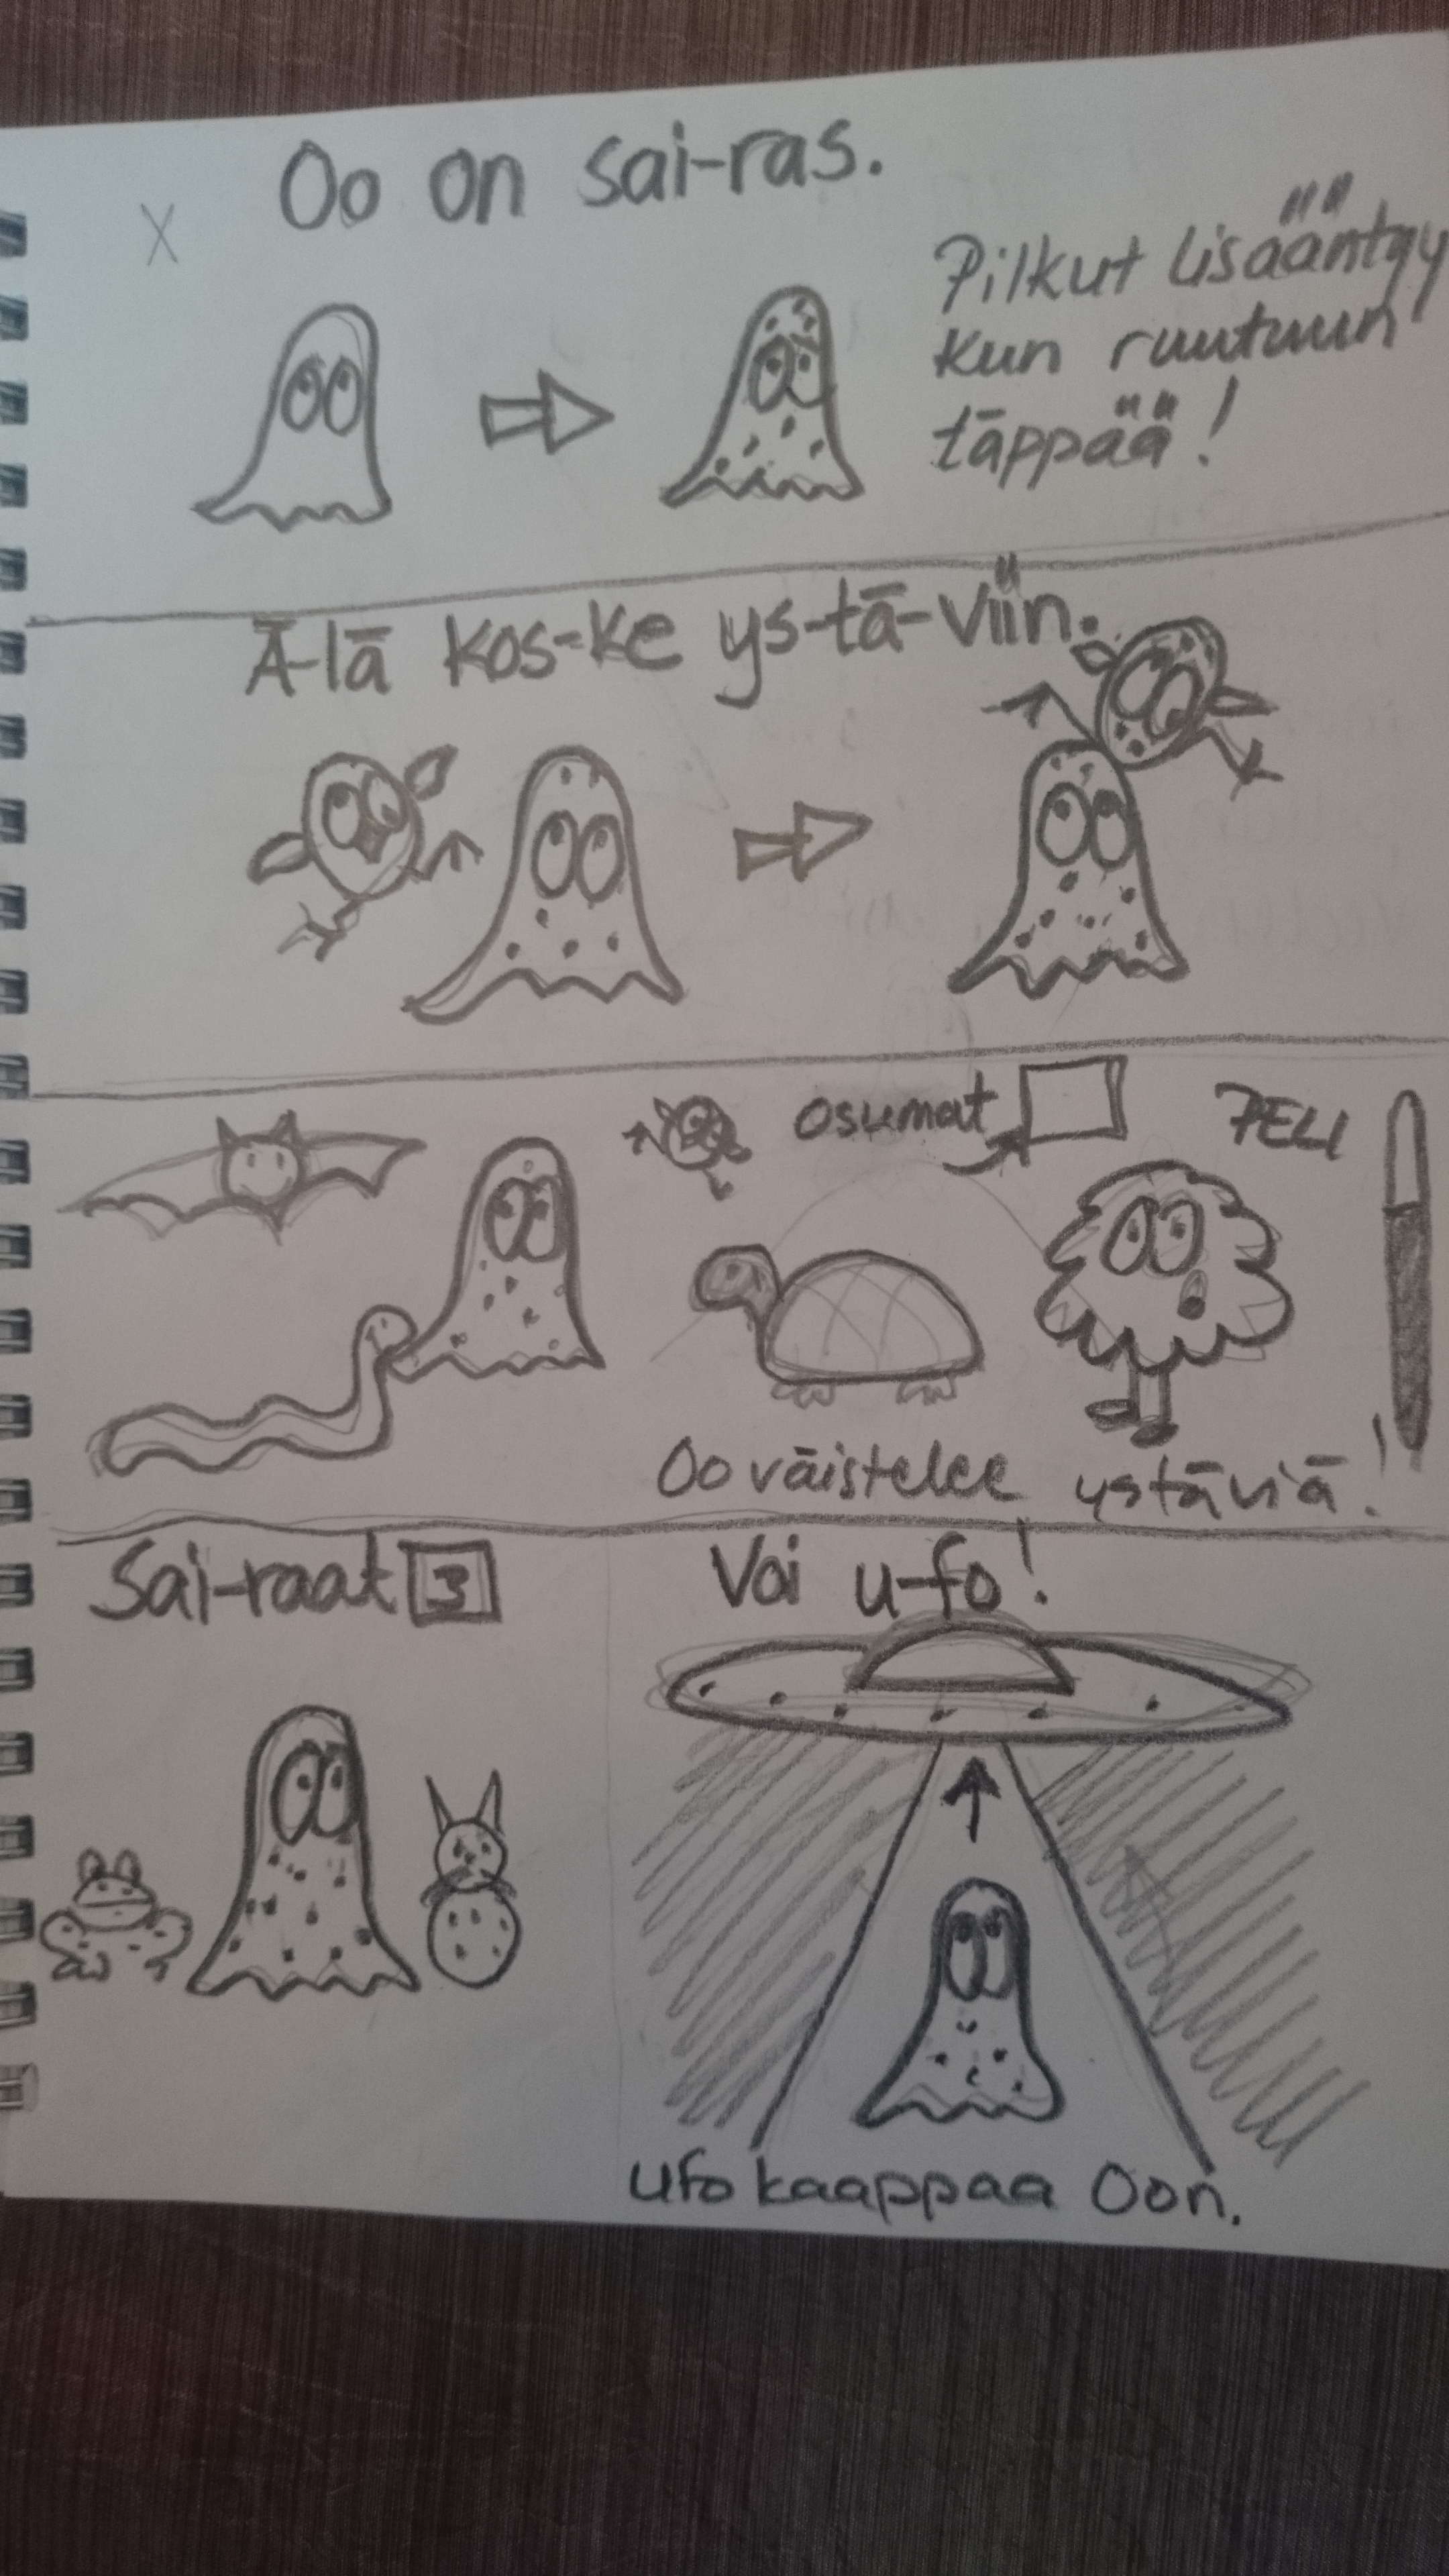 Oo on sai-ras.
X
Pilkut lisääntyy
kun ruutuun
täppää!
Ä-lä kos-ke ys-tä-viin.
osumat
PELI
Oo väistelee ystäviä!
Sai-raat 3
Voi u-fo!
ufo kaappaa Oon.